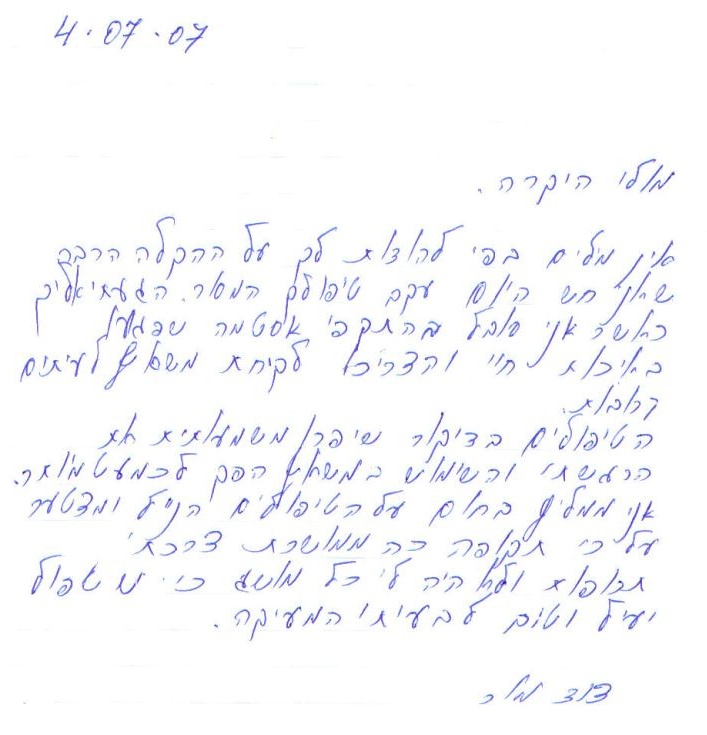 4.07.07
מולי היקרה.
אין מלים בפי להודות לך על ההקלה הרבה
שאני חש היום עקב טיפולך המסור. הגעתי אליך
כאשר אני סובל מהתקפי אסטמה שפגעו
באיכות חיי והצריכו לקיחת משאף לעיתים
קרובות.
הטיפולים בדיקור שיפרו משמעותית את
הרגשתי והשימוש במשאף הפך לכמעט מיותר.
אני ממליץ בחום על הטיפולים הנ״ל ומצטער
על כי תקופה כה ממושכת צרכתי
תרופות ולא היה לי כל מושג כי יש טפול
יעיל וטוב לבעיתי המעיקה.
דוד